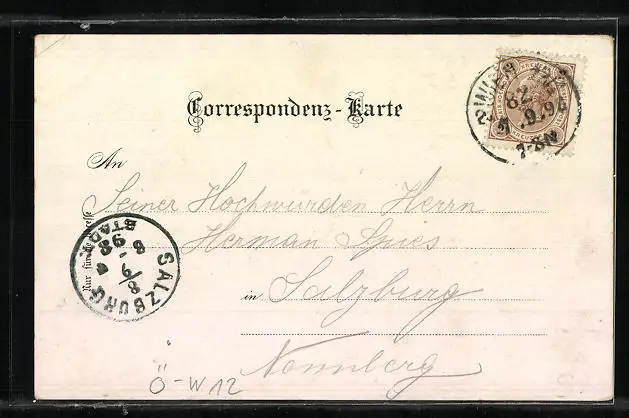 Correspondenz-Karte
An
Seiner Hochwürden Herrn
Herman Spies
in Salzburg
Nonnberg
Nur für die Adresse
WIEN
82
9.9
7-8N
SALZBURG
STADT
8
9
98
Ö-W12